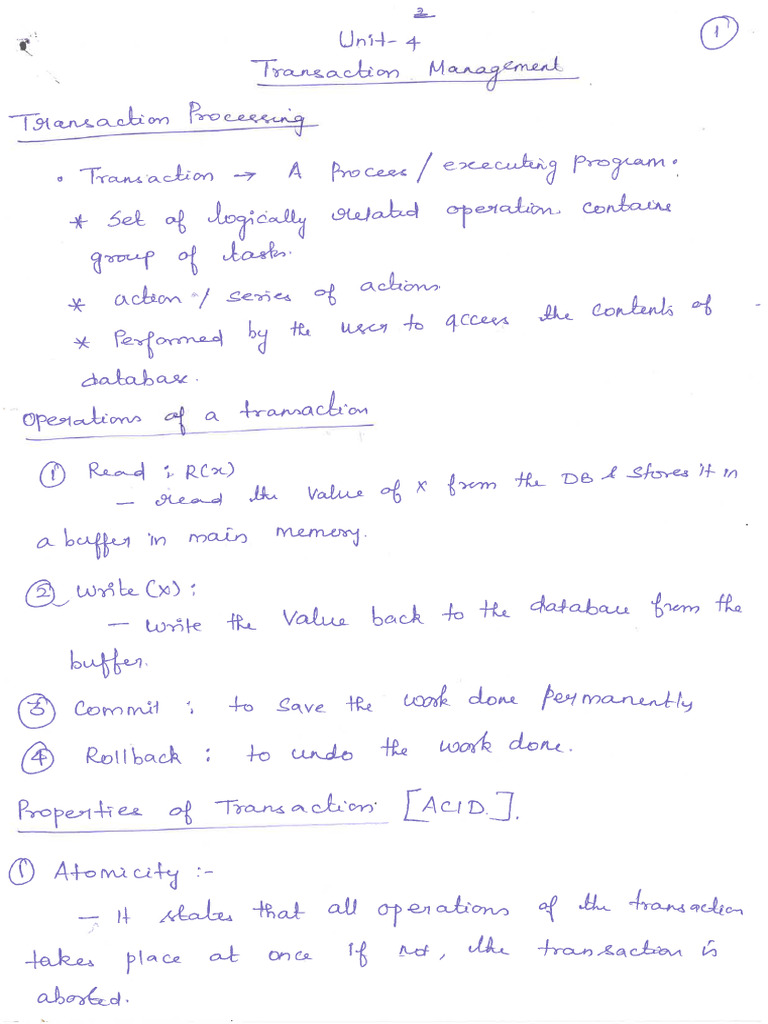 2
Unit-4
1
Transaction Management
Transaction Processing
• Transaction → A Process / executing program.
* Set of logically related operation contains
group of tasks.
* action / series of actions
* Performed by the user to access the contents of
database.
Operations of a transaction
① Read : R(x)
- read the value of x from the DB & stores it in
a buffer in main memory.
② Write (x) :
- write the value back to the database from the
buffer.
③ Commit : to save the work done permanently
④ Rollback : to undo the work done.
Properties of Transaction [ACID.].
① Atomicity :-
- It states that all operations of the transaction
takes place at once if not, the transaction is
aborted.